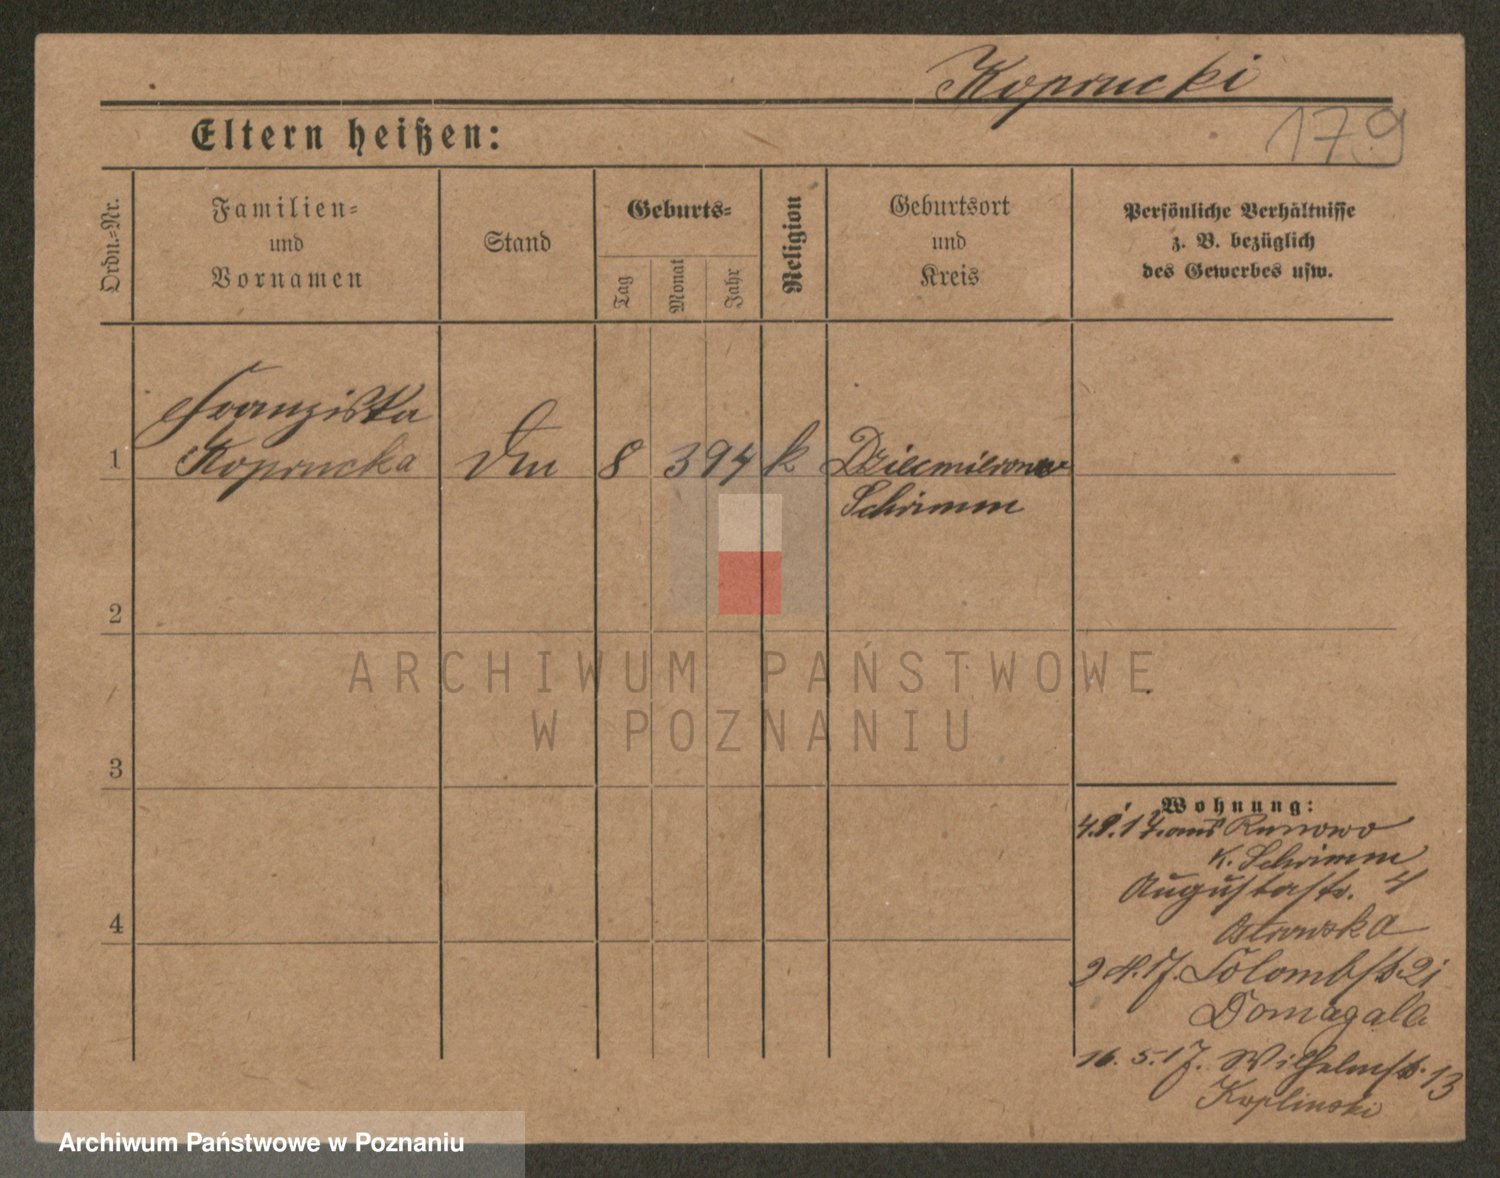 Koprucki
179
Eltern heißen:
Ordn.=Nr.
Familien=
und
Vornamen
Stand
Geburts=
Tag
Monat
Jahr
Religion
Geburtsort
und
Kreis
Persönliche Verhältnisse
z. B. bezüglich
des Gewerbes usw.
1
Franziska
Koprucka
8 3 94 k
Schrimm
2
3
4
ARCHIWUM PAŃSTWOWE
W POZNANIU
Wohnung:
aus Runowo
K. Schrimm
Augustastr. 4
Ostrowska
2.4.17. Colombstr 21
Domagala
16.5.17. Wilhelmstr. 13
Koplinski
Archiwum Państwowe w Poznaniu